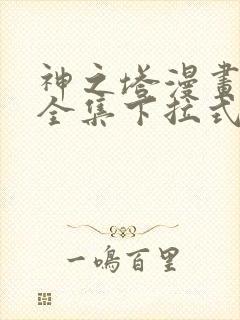 神之塔漫畫
全集下拉式
一鳴百里